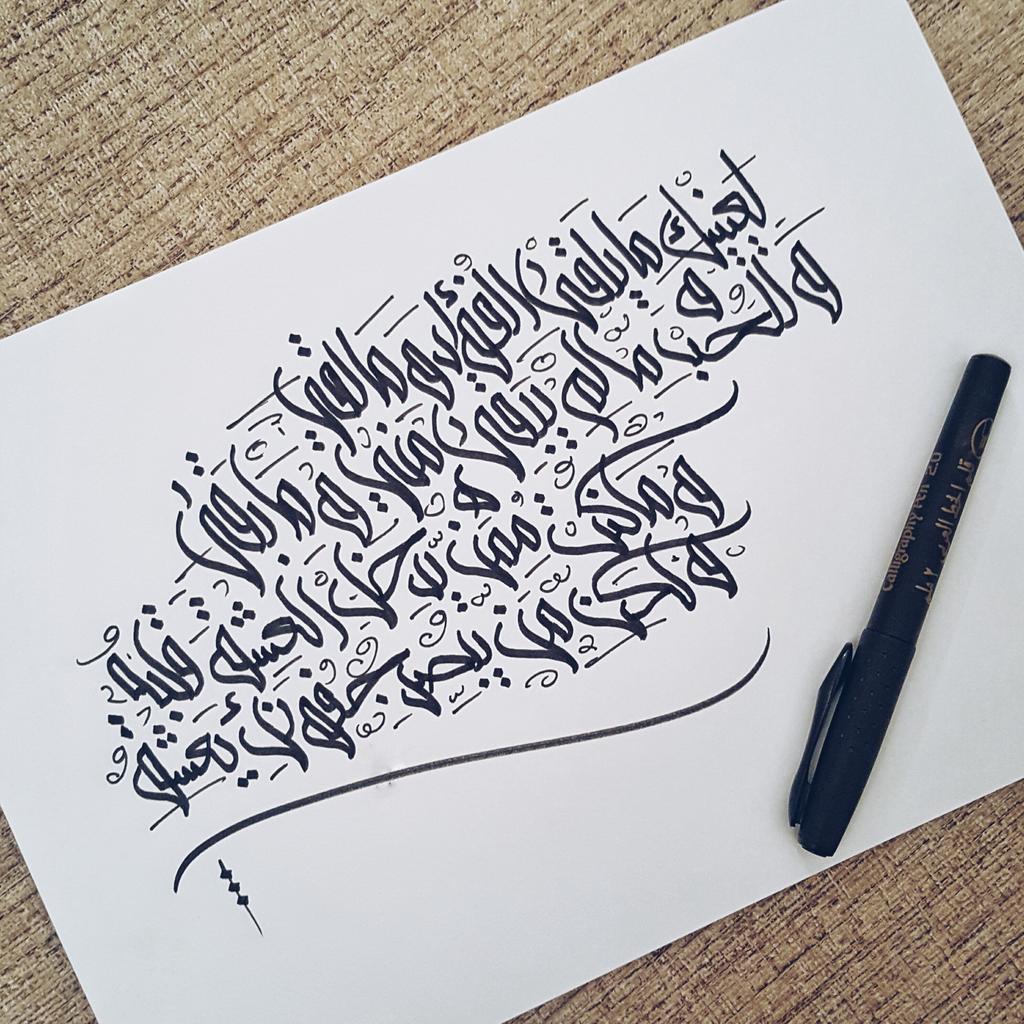 لعينيك ما يلقى الفؤاد وما لقي
و للحب ما لم يبق مني و ما بقي
و ما كنت ممن يدخل العشق قلبه
و لكن من يبصر جفونك يعشق
Calligraphy Pen 2.0
قلم الخط العربي